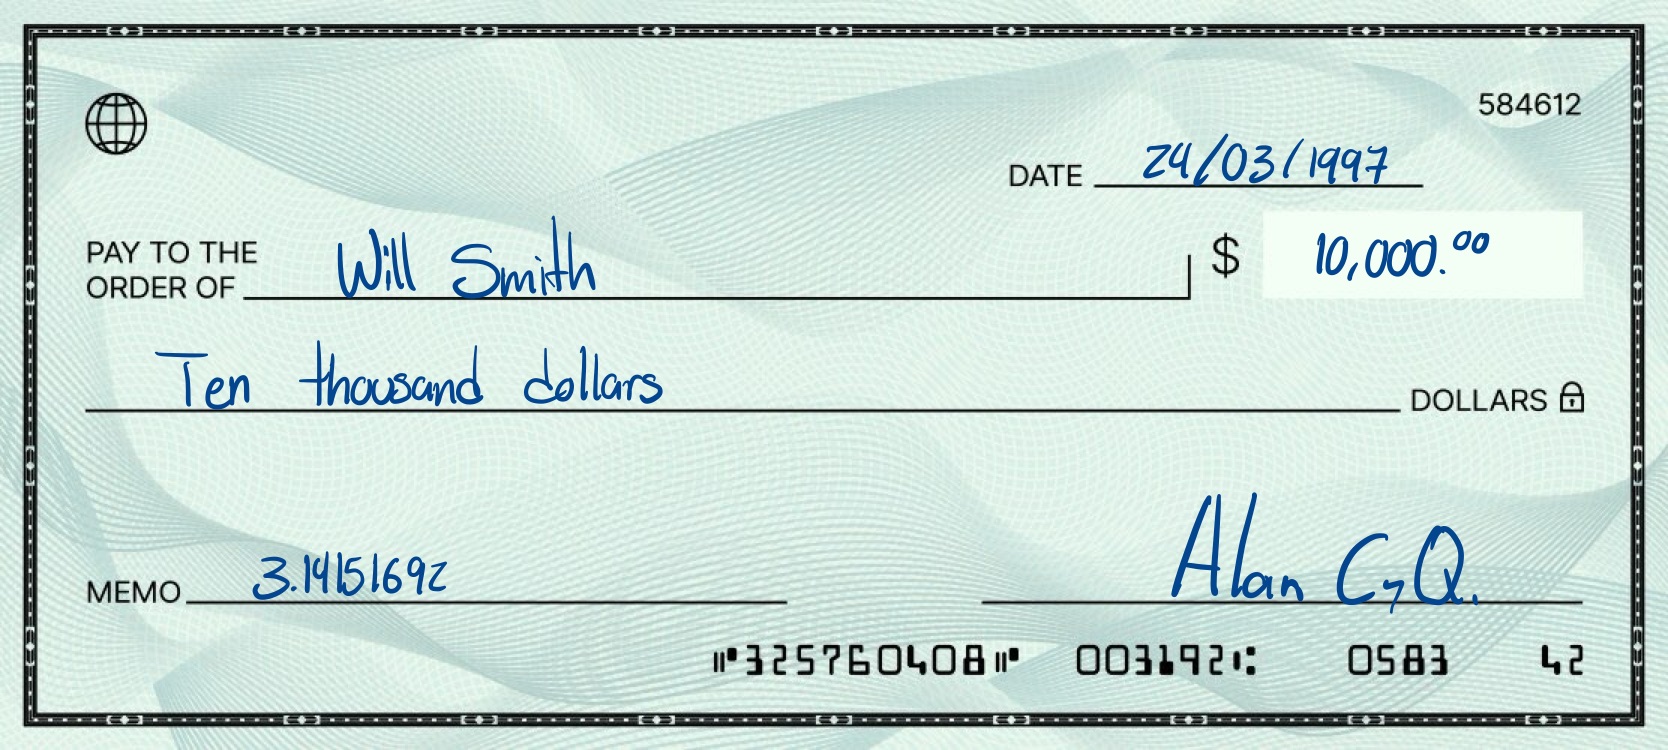 584612
DATE 24/03/1997
PAY TO THE
ORDER OF Will Smith $ 10,000.00
Ten thousand dollars DOLLARS
MEMO 3.14151692 Alan C7Q.
⑈325760408⑈ 003192⑆ 0583 42